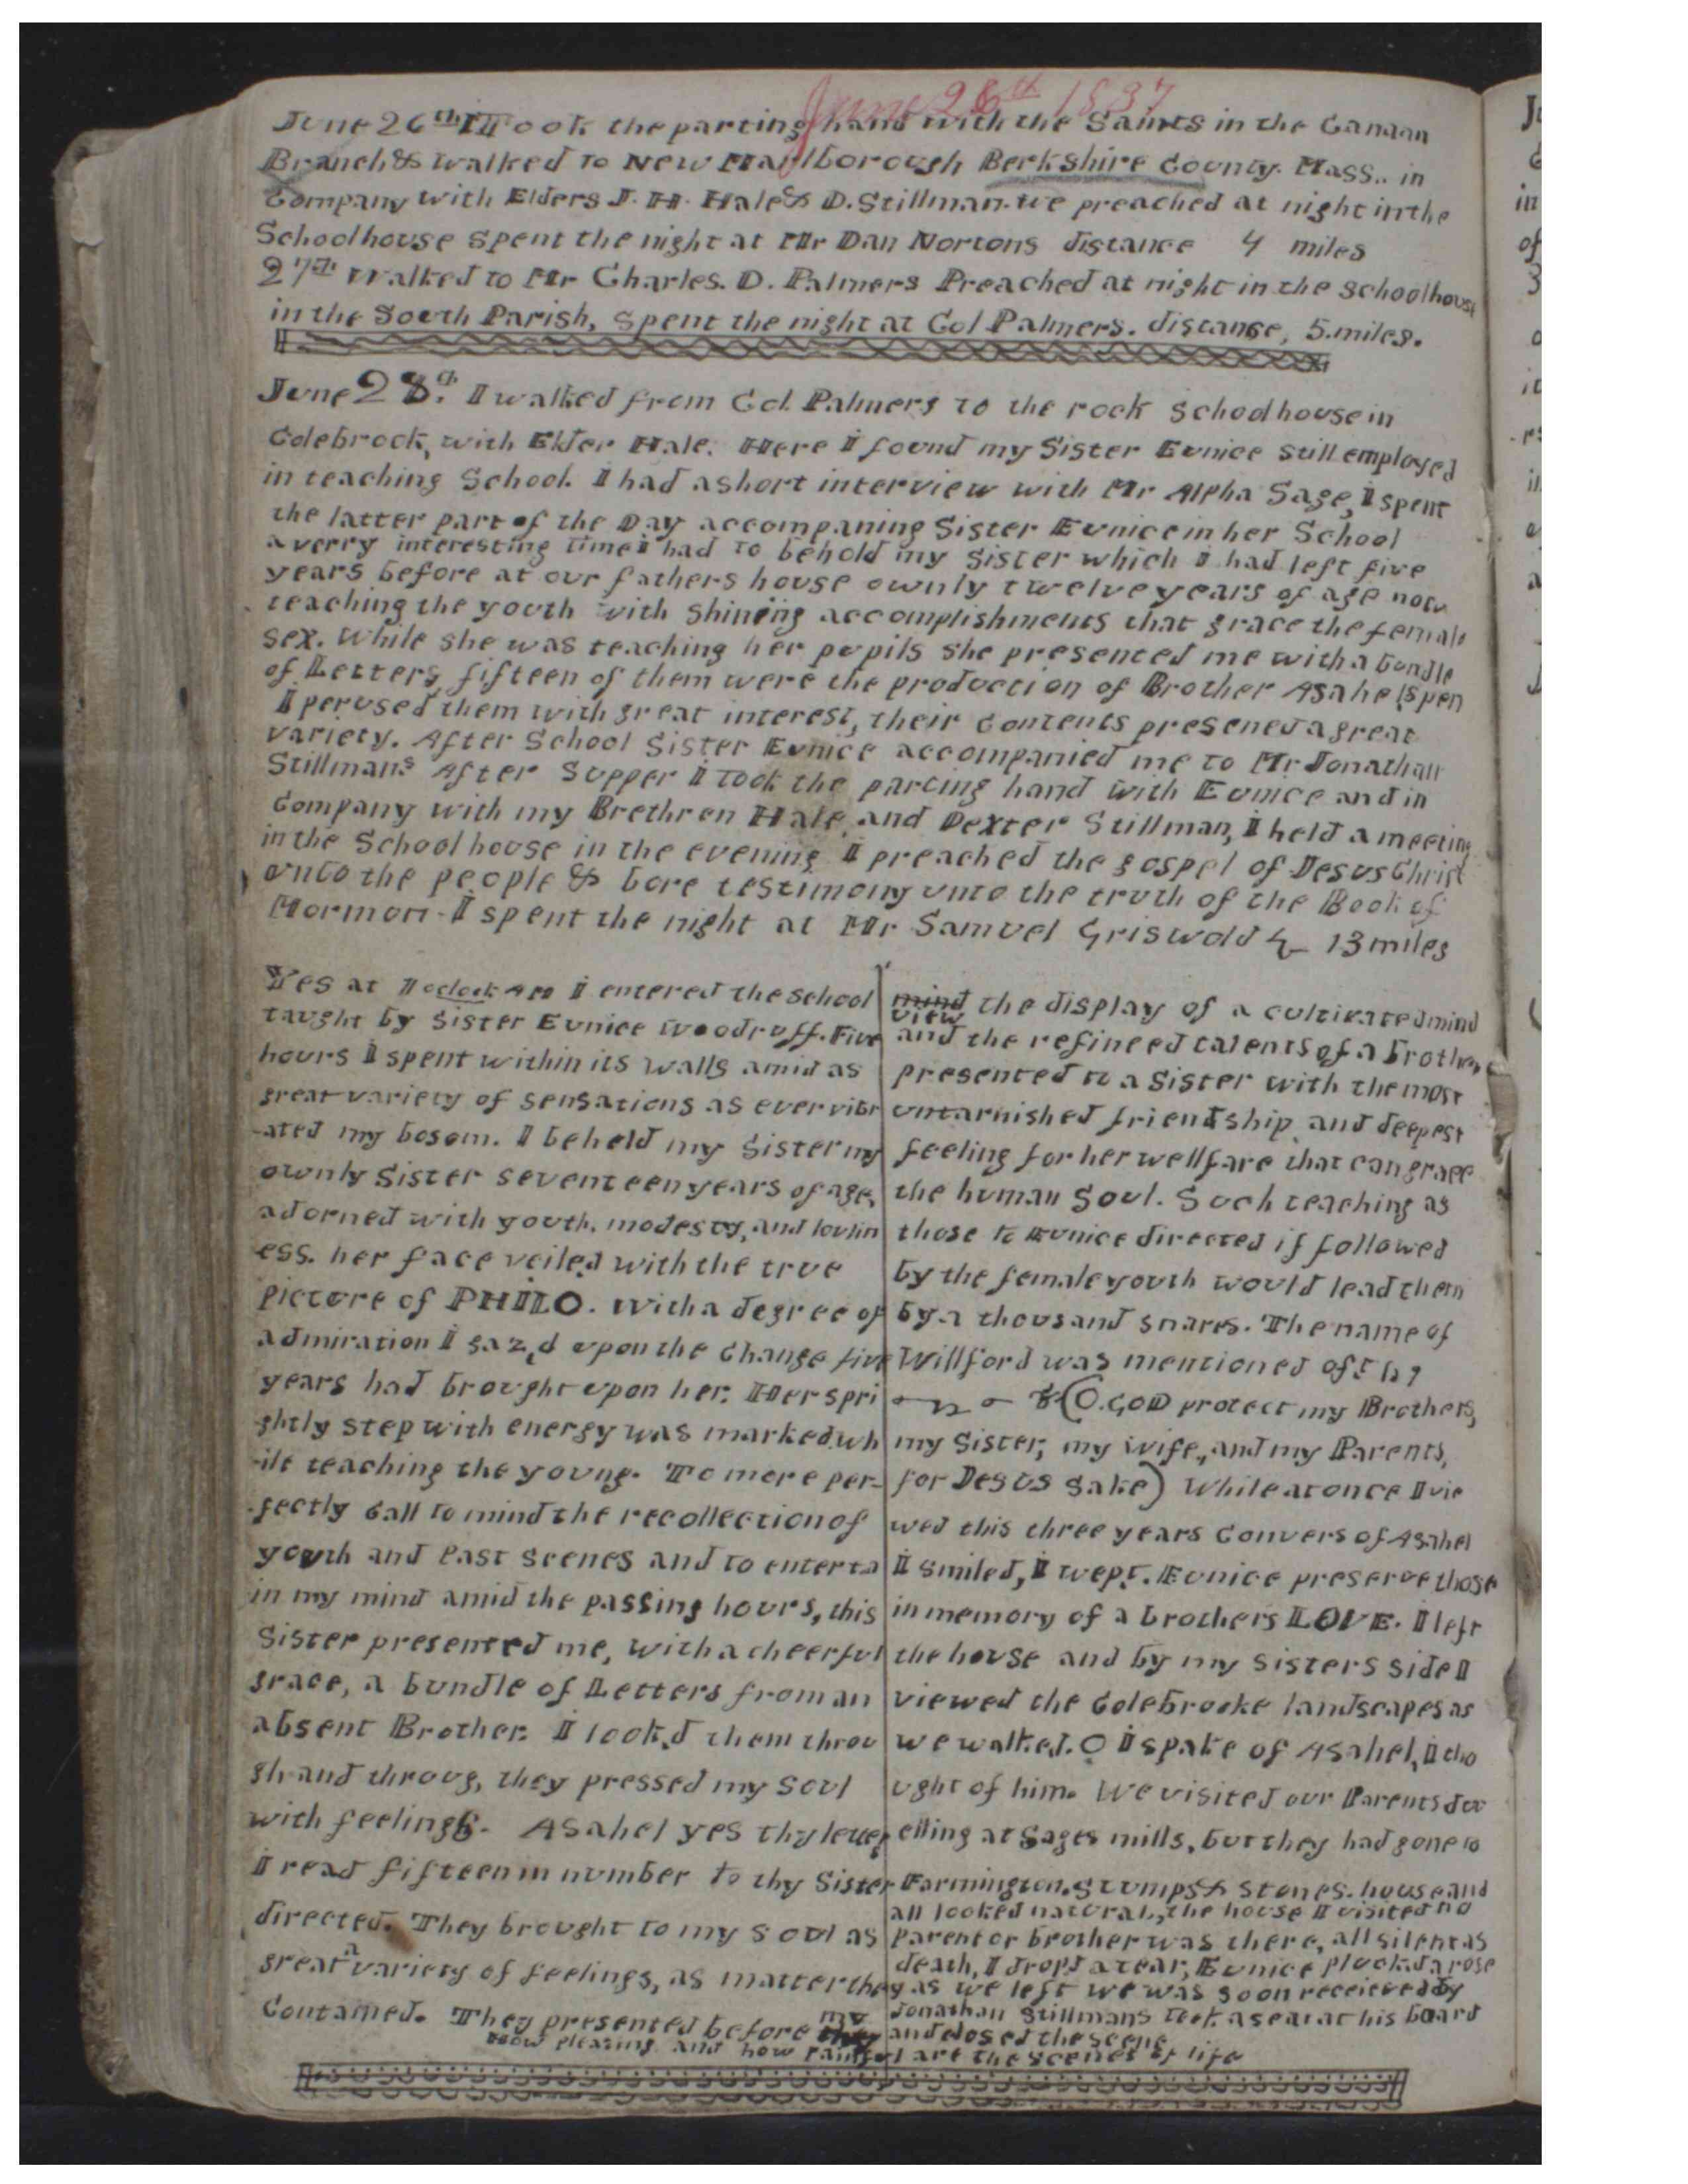 June 26th 1837
June 26th I Took the parting hand with the Saints in the Canaan
Branch & walked to New Marlborough Berkshire County. Mass.. in
Company with Elders J. H. Hale & D. Stillman. we preached at night in the
Schoolhouse Spent the night at Mr Dan Nortons distance 4 miles
27th Walked to Mr Charles. D. Palmers Preached at night in the schoolhouse
in the South Parish, Spent the night at Col Palmers. distance, 5.miles.
June 28th. I walked from Col. Palmers to the rock Schoolhouse in
Colebrook, with Elder Hale. Here I found my Sister Eunice still employed
in teaching School. I had a short interview with Mr Alpha Sage, I spent
the latter part of the Day accompaning Sister Eunice in her School
a verry interesting time I had to behold my Sister which I had left five
years before at our fathers house ownly twelve years of age now
teaching the youth with shining accomplishments that grace the female
sex. While she was teaching her pupils she presented me with a bundle
of Letters, fifteen of them were the production of Brother Asahels pen
I perused them with great interest, their Contents presened a great
variety. After School Sister Eunice accompanied me to Mr Jonathan
Stillmans After Supper I took the parting hand with Eunice and in
Company with my Brethren Hale, and Dexter Stillman, I held a meeting
in the School house in the evening I preached the gospel of Jesus Christ
unto the people & bore testimony unto the truth of the Book of
Mormon - I spent the night at Mr Samuel Griswold 13 miles
Yes at oclock I entered the school
taught by Sister Eunice Woodruff. Five
hours I spent within its walls amid as
great variety of sensations as ever vibr
-ated my bosom. I beheld my Sister my
ownly Sister seventeen years of age,
adorned with youth, modesty, and lovlin
ess. her face veiled with the true
picture of PHILO. With a degree of
admiration I gaz,d upon the Change five
years had brought upon her. Her spri
ghtly step with energy was marked wh
-ile teaching the young. To more per-
-fectly Call to mind the recollection of
youth and Past Scenes and to enterta
in my mind amid the passing hours, this
Sister presented me, with a cheerful
grace, a bundle of Letters from an
absent Brother. I look,d them throu
gh and throug, they pressed my Soul
with feelings. Asahel yes thy letters
I read fifteen in number to thy Sister
directed. They brought to my soul as
great a variety of feelings, as matter they
Contained. They presented before my
mind the display of a cultivated mind
view
and the refineed talents of a brother,
presented to a Sister with the most
untarnished friendship, and deepest
feeling for her wellfare that can grace
the human Soul. Such teaching as
those to Eunice directed if followed
by the female youth would lead them
by a thousand snares. The name of
Willford was mentioned oft
(O. GOD protect my Brothers,
my Sister, my wife, and my Parents,
for Jesus Sake) While at once I vie
wed this three years Convers of Asahel
I smiled, I wept. Eunice preserve those
in memory of a brothers LOVE. I left
the house and by my sisters side I
viewed the Colebrooke landscapes as
we walked. O I spake of Asahel, I tho
ught of him. We visited our Parents dw
elling at Sages mills, but they had gone to
Farmington. Stumps & stones. house and
all looked natural, the house I visited no
Parent or brother was there, all silent as
death, I drop,d a tear, Eunice pluck,d a rose
as we left we was soon receieved by
Jonathan Stillmans took a seat at his board
and closed the scene
How pleasing and how painful are the scenes of life